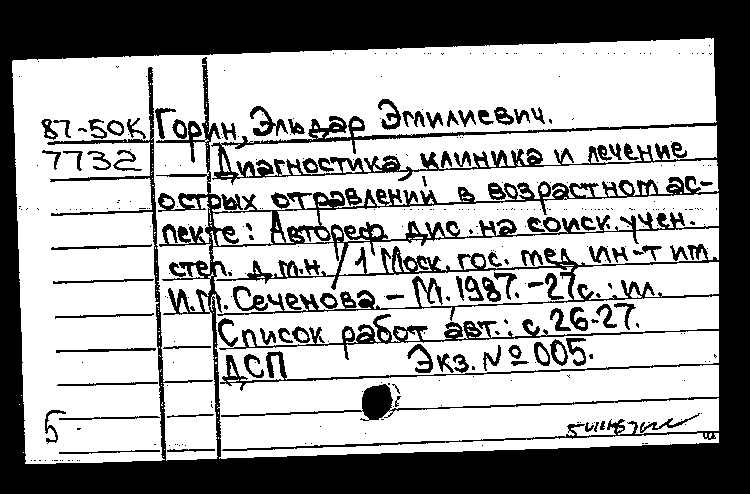 87-50К Горин, Эльдар Эмилиевич.
7732 Диагностика, клиника и лечение
острых отравлений в возрастном ас-
пекте: Автореф. дис. на соиск. учен.
степ. д.м.н. / 1 Моск. гос. мед. ин-т им.
И.М. Сеченова. - М. 1987. - 27с.: ил.
Список работ авт.: с. 26-27.
ДСП Экз. № 005.
5